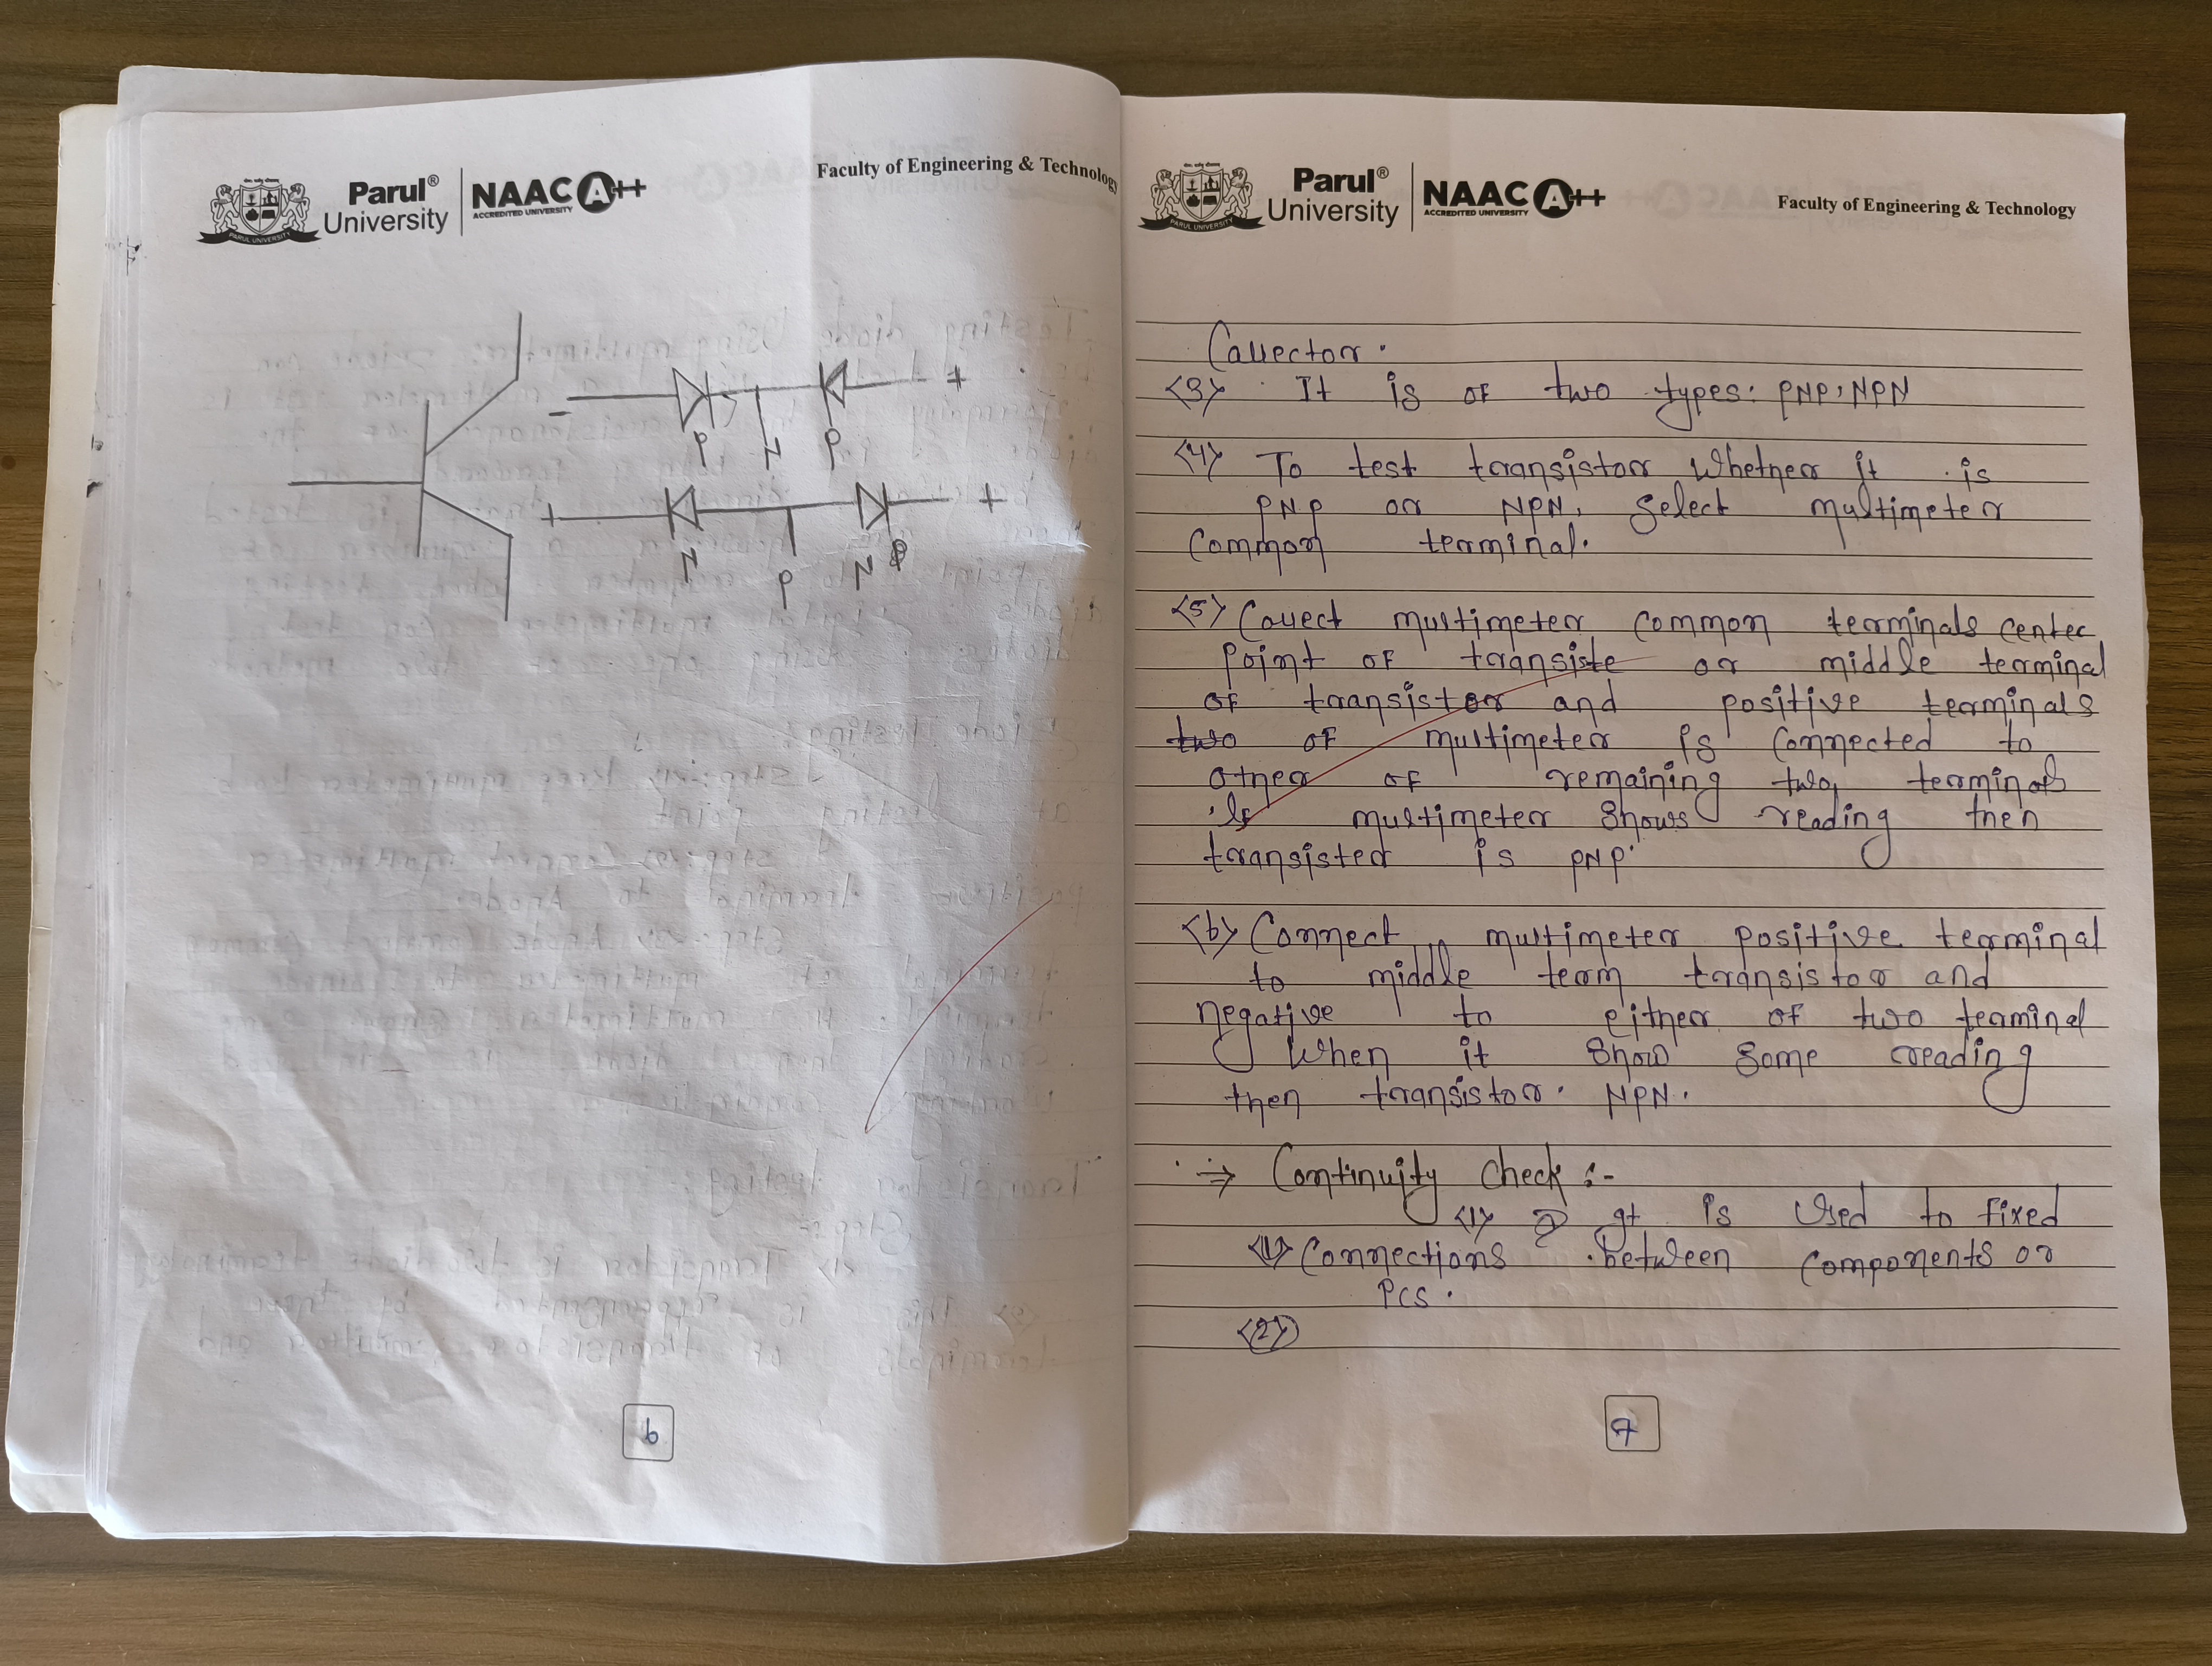 Parul® University
NAAC A++
ACCREDITED UNIVERSITY
PARUL UNIVERSITY
Faculty of Engineering & Technology
- +
P N P
+ +
N P N
6
Parul® University
NAAC A++
ACCREDITED UNIVERSITY
PARUL UNIVERSITY
Faculty of Engineering & Technology
Callector.
<3> It is of two types: PNP, NPN
<4> To test transistor whether it is
PNP or NPN, select multimeter
common terminal.
<5> Collect multimeter common terminals center
point of transiste or middle terminal
of transistor and positive terminals
two of multimeter is connected to
other of remaining two terminals
If multimeter shows reading then
transister is PNP.
<6> Connect multimeter positive terminal
to middle term transistor and
negative to either of two terminal
when it show some reading
then transistor. NPN.
⇒ Continuity check :-
<1> It is used to fixed
<1> Connections between components or
PCS.
<2>
7